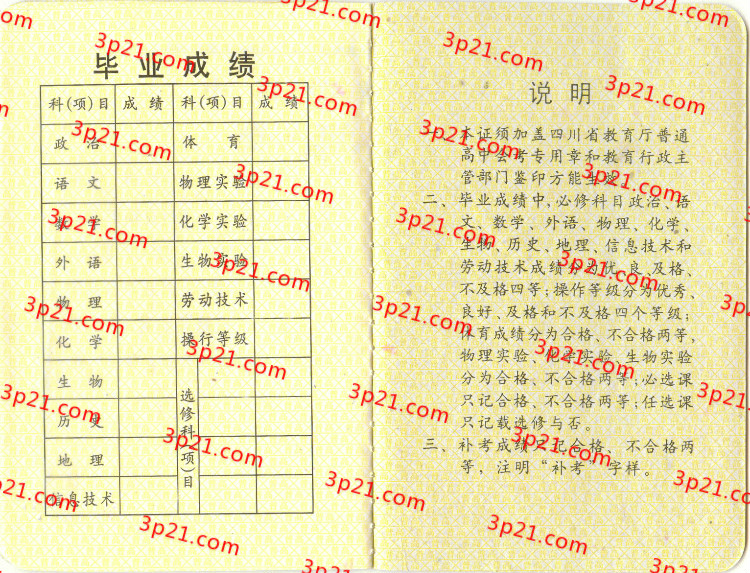 毕业成绩
科(项)目 成绩 科(项)目 成绩
政治 体育
语文 物理实验
数学 化学实验
外语 生物实验
物理 劳动技术
化学 操行等级
生物 选修科(项)目
历史
地理
信息技术
说明
一、本证须加盖四川省教育厅普通
高中会考专用章和教育行政主
管部门鉴印方能生效。
二、毕业成绩中,必修科目政治、语
文、数学、外语、物理、化学、
生物、历史、地理、信息技术和
劳动技术成绩分为优、良、及格、
不及格四等;操作等级分为优秀、
良好、及格和不及格四个等级;
体育成绩分为合格、不合格两等,
物理实验、化学实验、生物实验
分为合格、不合格两等;必选课
只记合格、不合格两等;任选课
只记载选修与否。
三、补考成绩只记合格、不合格两
等,注明“补考”字样。
3p21.com